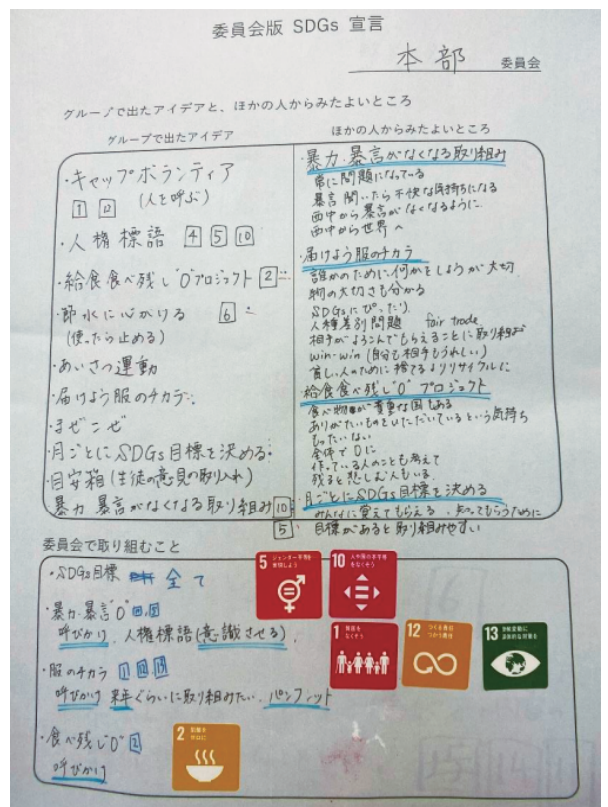 委員会版 SDGs 宣言
本部 委員会
グループで出たアイデアと、ほかの人からみたよいところ
グループで出たアイデア
・キャップボランティア
1 12 (人を呼ぶ)
・人権標語 4 5 10
・給食食べ残し"0"プロジェクト 2
・節水に心がける 6
(使ったら止める)
・あいさつ運動
・届けよう服のチカラ
・まぜこぜ
・月ごとにSDGs目標を決める
・目安箱(生徒の意見の取り入れ)
暴力 暴言がなくなる取り組み 10
5
ほかの人からみたよいところ
・暴力・暴言がなくなる取り組み
常に問題になっている
暴言聞いたら不快な気持ちになる
西中から暴言がなくなるように
西中から世界へ
・届けよう服のチカラ
誰かのために何かをしようが大切
物の大切さも分かる
SDGsにぴったり
人種差別問題 fair trade
相手がよろこんでもらえることに取り組む
win-win (自分も相手もうれしい)
貧しい人のために捨てるよりリサイクルに
給食食べ残し"0"プロジェクト
食べ物が貴重な国もある
ありがたいものをいただいているという気持ち
もったいない
全体で0に
作っている人のことも考えて
残ると悲しむ人もいる
・月ごとにSDGs目標を決める
みんなに覚えてもらえる、知ってもらうために
目標があると取り組みやすい
委員会で取り組むこと
・SDGs目標 全て
・暴力・暴言"0"
呼びかけ、人権標語(意識させる)
・服のチカラ 1 12 13
呼びかけ 来年ぐらいに取り組みたい、パンフレット
・食べ残し"0" 2
呼びかけ
5 ジェンダー平等を実現しよう
10 人や国の不平等をなくそう
1 貧困をなくそう
12 つくる責任 つかう責任
13 気候変動に具体的な対策を
2 飢餓をゼロに